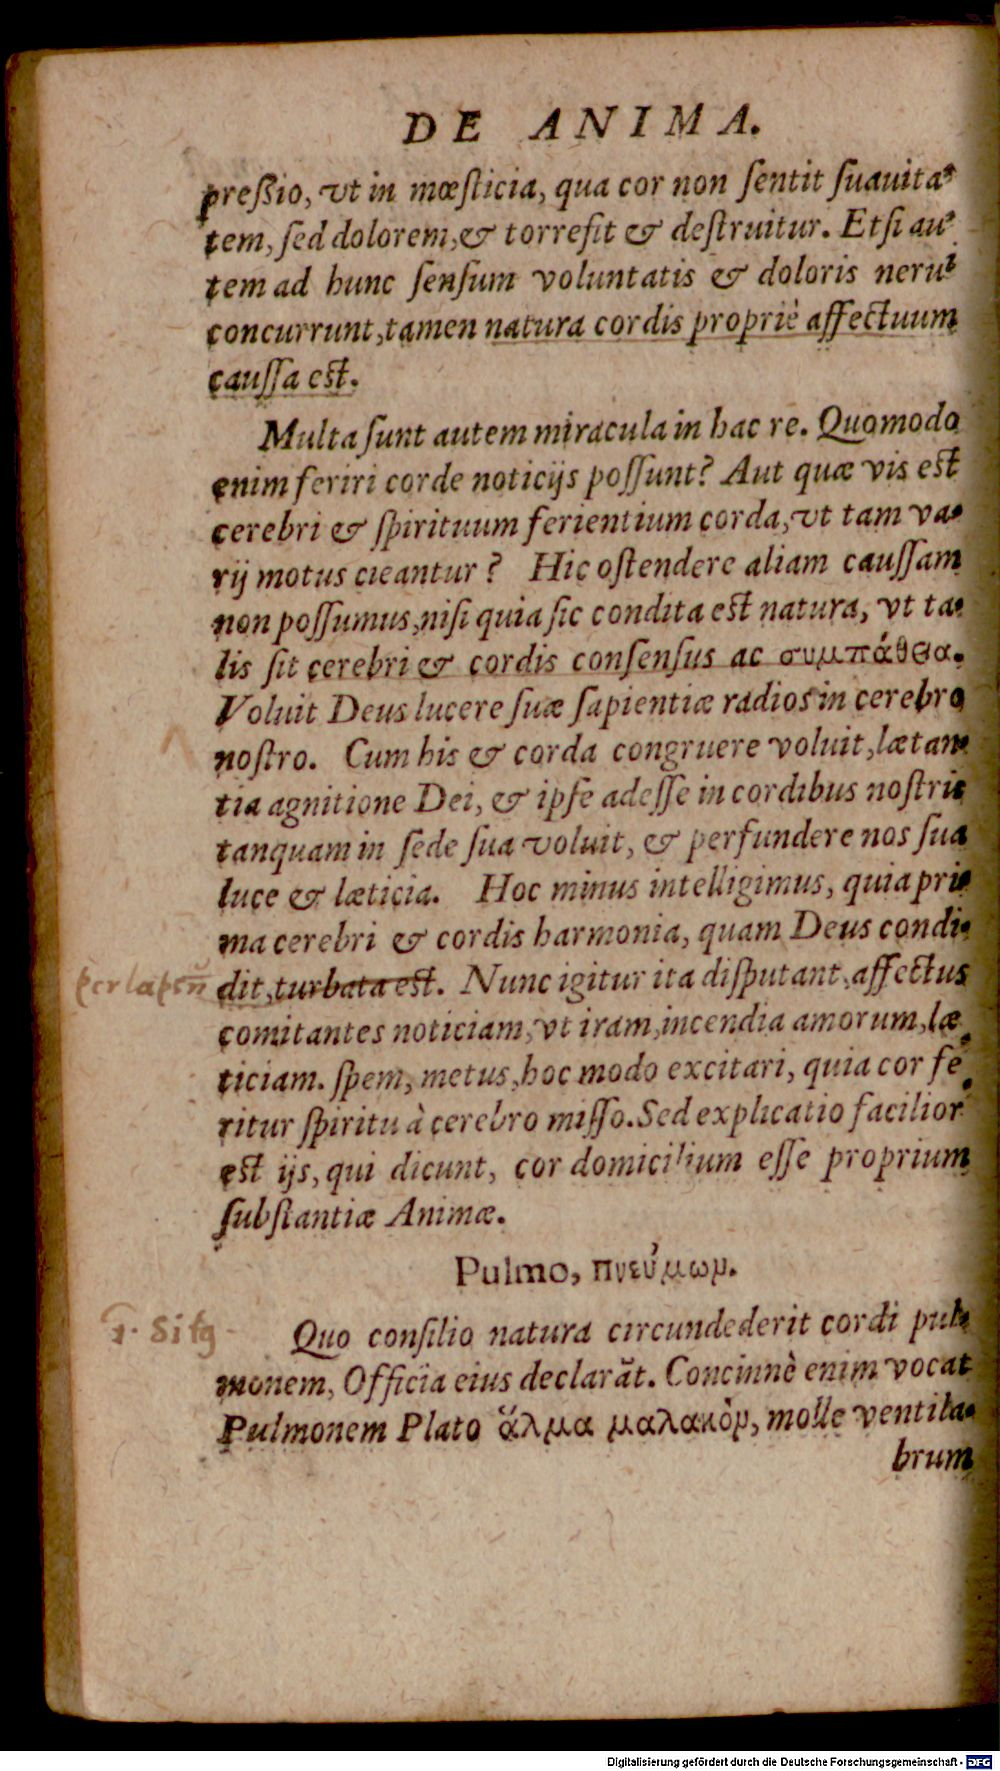 DE ANIMA.
preßio, vt in mœſticia, qua cor non ſentit ſuauita-
tem, ſed dolorem, & torrefit & deſtruitur. Etſi au-
tem ad hunc ſenſum voluntatis & doloris nerui
concurrunt, tamen natura cordis propriè affectuum
cauſſa eſt.
Multa ſunt autem miracula in hac re. Quomodo
enim feriri corde noticijs poſſunt? Aut quæ vis eſt
cerebri & ſpirituum ferientium corda, vt tam va-
rij motus cieantur? Hic oſtendere aliam cauſſam
non poſſumus, niſi quia ſic condita eſt natura, vt ta-
lis ſit cerebri & cordis conſenſus ac συμπάθεια.
Voluit Deus lucere ſuæ ſapientiæ radios in cerebro
noſtro. Cum his & corda congruere voluit, lætan-
tia agnitione Dei, & ipſe adeſſe in cordibus noſtris
tanquam in ſede ſua voluit, & perfundere nos ſua
luce & læticia. Hoc minus intelligimus, quia pri-
ma cerebri & cordis harmonia, quam Deus condi-
per lapſũ
dit, turbata eſt. Nunc igitur ita diſputant, affectus
comitantes noticiam, vt iram, incendia amorum, læ-
ticiam. ſpem, metus, hoc modo excitari, quia cor fe-
ritur ſpiritu à cerebro miſſo. Sed explicatio facilior
eſt ijs, qui dicunt, cor domicilium eſſe proprium
ſubſtantiæ Animæ.
Pulmo, πνεύμων.
1. Sitq
Quo conſilio natura circundederit cordi pul-
monem, Officia eius declarãt. Concinnè enim vocat
Pulmonem Plato ἅλμα μαλακὸν, molle ventila-
brum
Digitalisierung gefördert durch die Deutsche Forschungsgemeinschaft - DFG